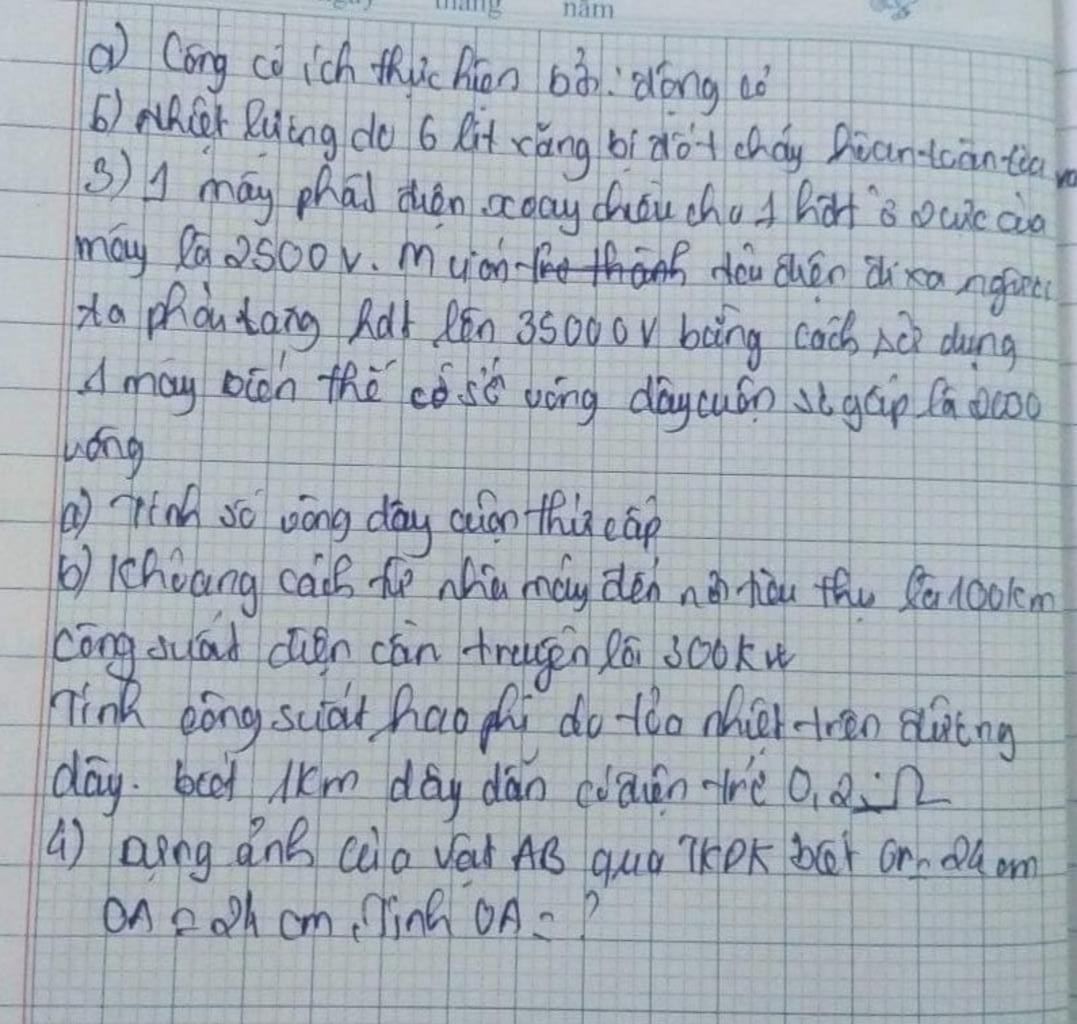 tháng năm
a) Công có ích thực hiện bởi động cơ
b) Nhiệt lượng do 6 lít xăng bị đốt cháy hoàn toàn tỏa ra
3) 1 máy phát điện xoay chiều cho 1 hđt ở 2 cực của
máy là 2500V. Muốn tải điện đi xa người
ta phải tăng hđt lên 35000V bằng cách sử dụng
1 máy biến thế có số vòng dây cuộn sơ cấp là 2000
vòng
a) Tính số vòng dây cuộn thứ cấp
b) Khoảng cách từ nhà máy đến nơi tiêu thụ là 100km
công suất điện cần truyền là 300KW
Tính công suất hao phí do tỏa nhiệt trên đường
dây. biết 1km dây dẫn có điện trở 0,2 Ω
4) Dựng ảnh của vật AB qua TKPK biết OF = 24 cm
OA = 24 cm. Tính OA = ?